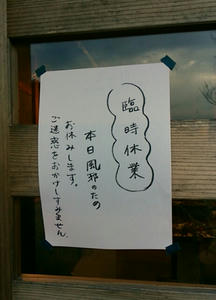 臨時休業
本日風邪のため
お休みします。
ご迷惑をおかけしすみません。